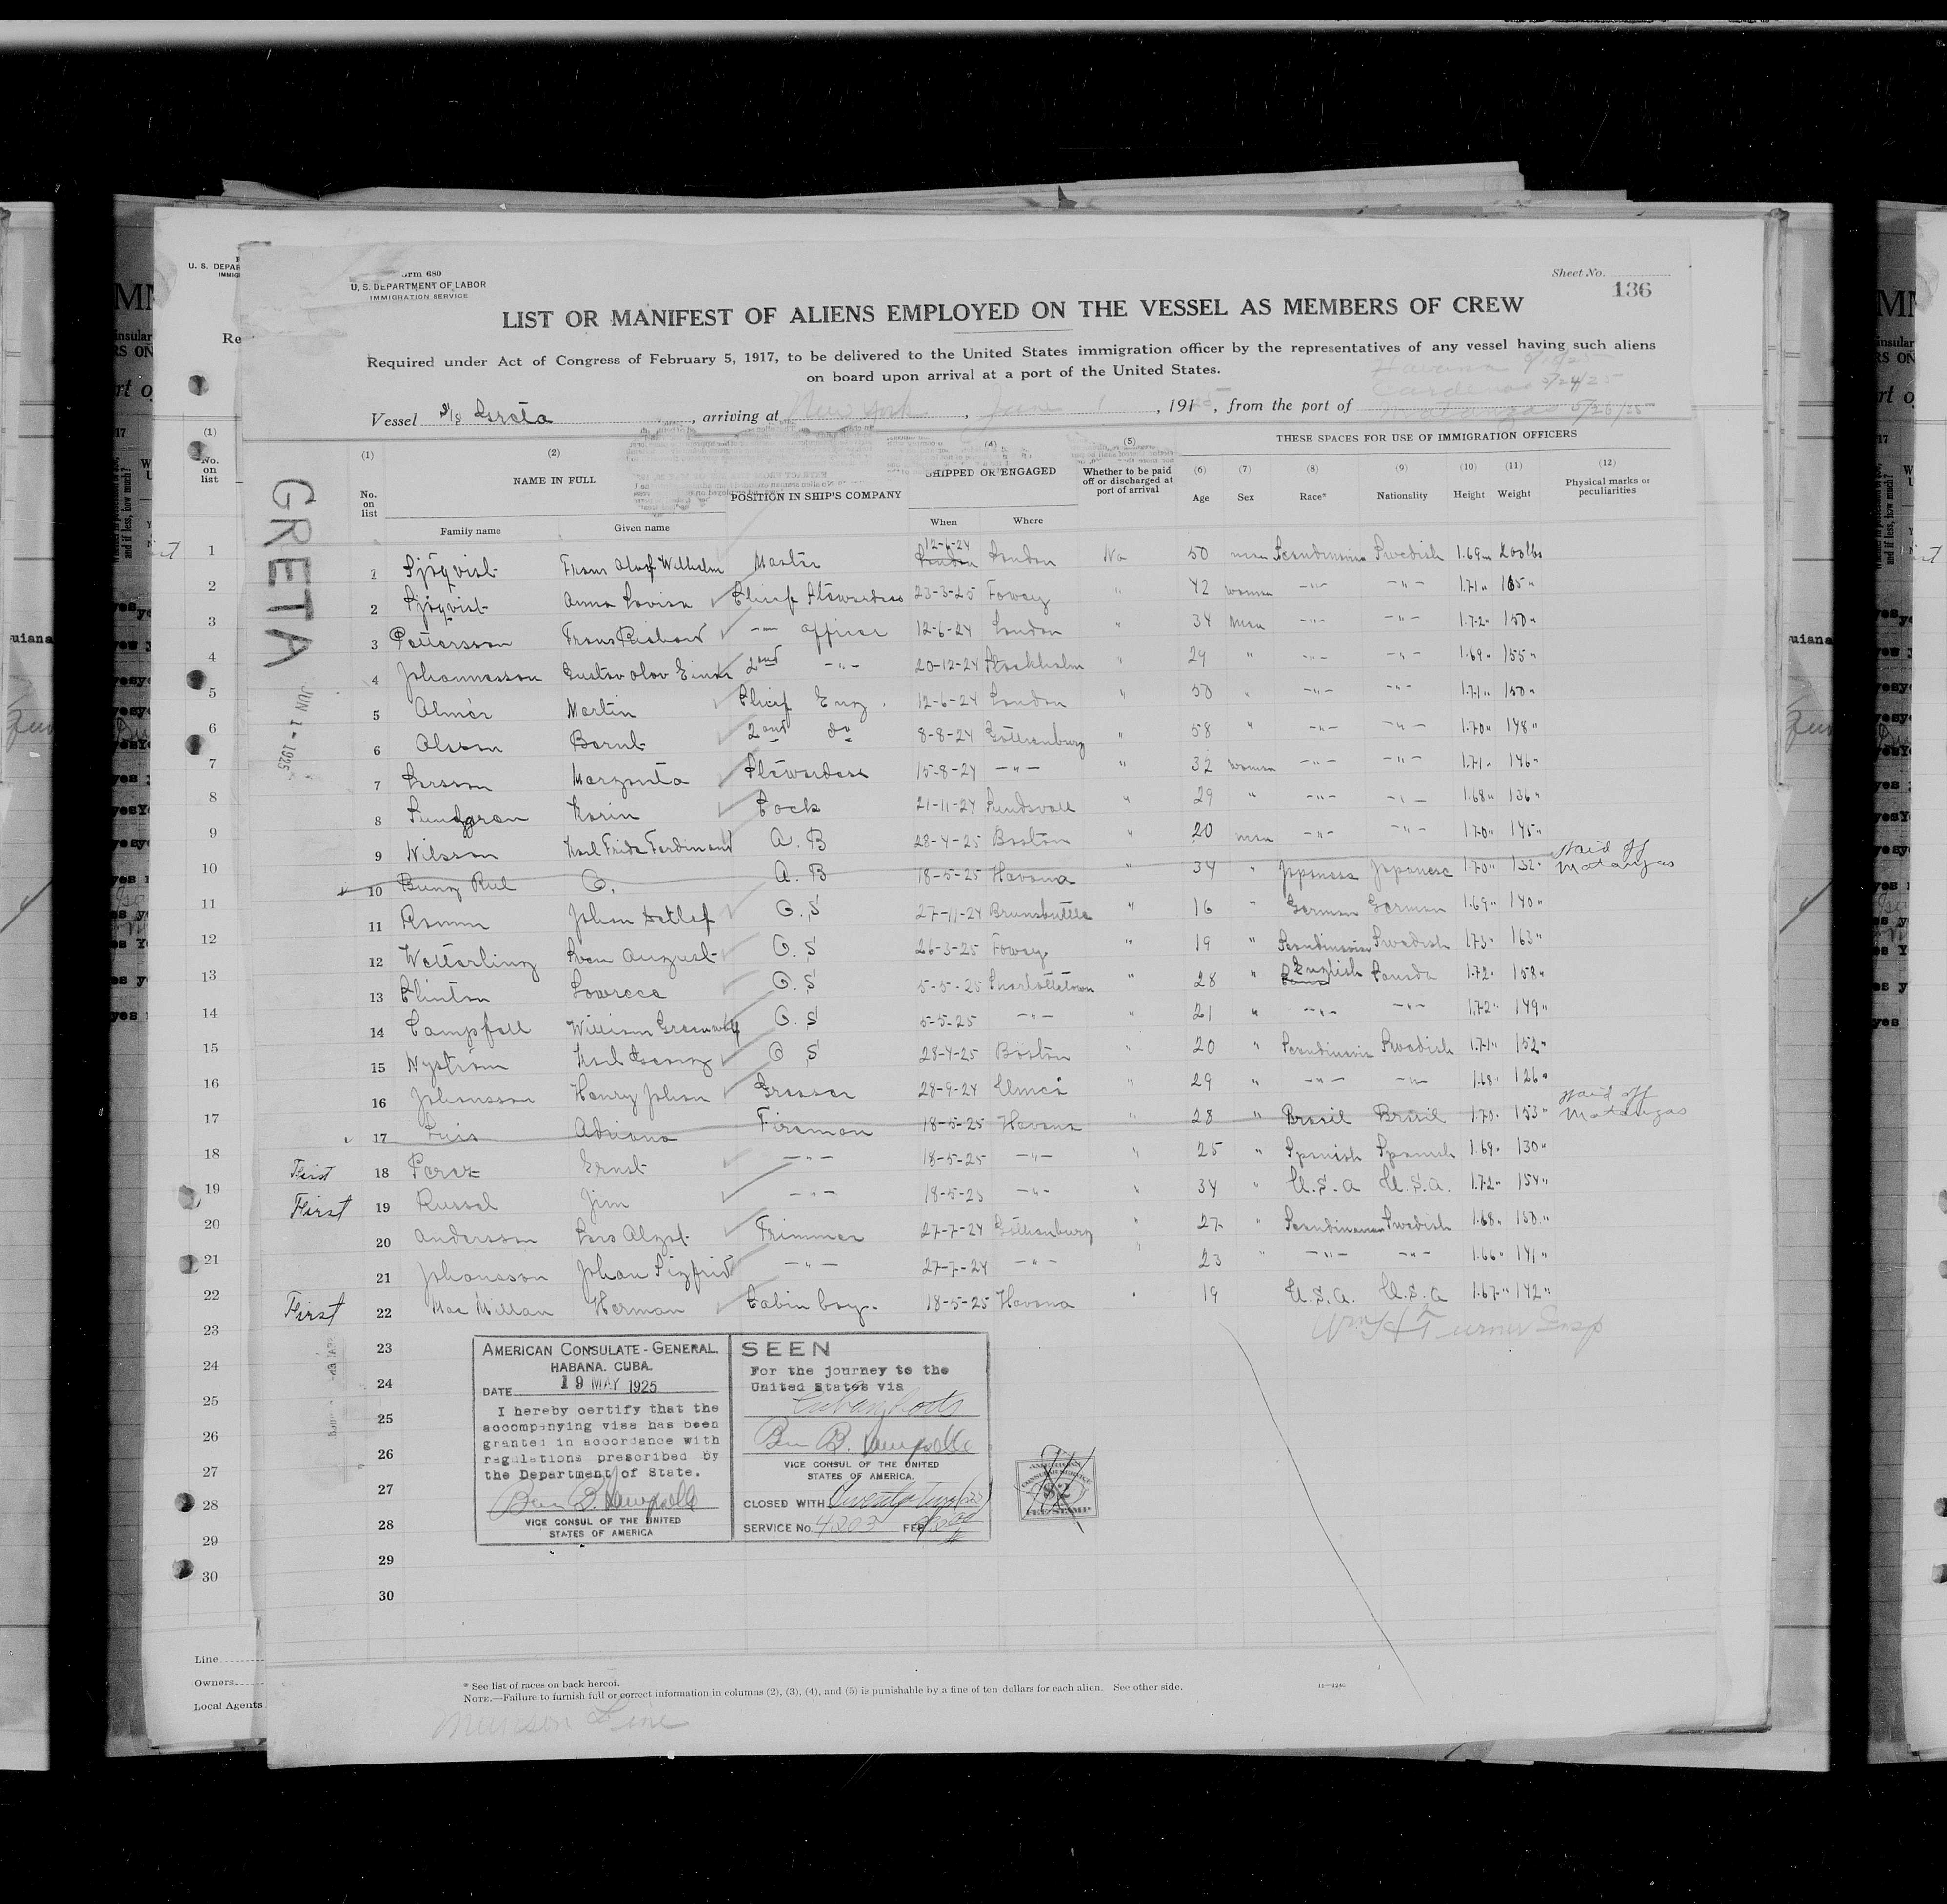 Form 680
U. S. DEPARTMENT OF LABOR
IMMIGRATION SERVICE
Sheet No.
136
LIST OR MANIFEST OF ALIENS EMPLOYED ON THE VESSEL AS MEMBERS OF CREW
Required under Act of Congress of February 5, 1917, to be delivered to the United States immigration officer by the representatives of any vessel having such aliens
on board upon arrival at a port of the United States.
Havana
Cardenas 5/24/25
Vessel S/S Greta, arriving at New York, June 1, 1925, from the port of Matanzas 5/26/25
GRETA
JUN 1 - 1925
THESE SPACES FOR USE OF IMMIGRATION OFFICERS
(1) (2) (4) (5) (6) (7) (8) (9) (10) (11) (12)
No. on list NAME IN FULL POSITION IN SHIP'S COMPANY SHIPPED OR ENGAGED Whether to be paid off or discharged at port of arrival Age Sex Race* Nationality Height Weight Physical marks or peculiarities
Family name Given name When Where
1 Sjöqvist Frans Olof Wilhelm Master 12-6-24 London No 50 man Scandinavian Swedish 1.69m 200lbs
2 Sjöqvist Anna Lovisa Chief Stewardess 23-3-25 Fowey " 42 woman -"- -"- 1.71" 165"
3 Pettersson Frans Richard -"- officer 12-6-24 London " 34 Man -"- -"- 1.72" 150"
4 Johannesson Gustav Olov Einar 2nd -"- 20-12-24 Stockholm " 29 " -"- -"- 1.69" 155"
5 Almér Martin Chief Eng. 12-6-24 London " 50 " -"- -"- 1.71" 150"
6 Olsson Bernt 2nd do 8-8-24 Gothenburg " 58 " -"- -"- 1.70" 148"
7 Larsson Margareta Stewardess 15-8-24 -"- " 32 woman -"- -"- 1.71" 146"
8 Lundgren Karin Cook 21-11-24 Sundsvall " 29 " -"- -"- 1.68" 136"
9 Nilsson Karl Frida Ferdinand A. B 28-4-25 Boston " 20 man -"- -"- 1.70" 145"
10 Bung Rul O. A. B 18-5-25 Havana " 34 " Japanese Japanese 1.70" 132" paid off Matanzas
11 Asmun Johan Detlef O. S 27-11-24 Brunsbuttle " 16 " German German 1.69" 140"
12 Wetterling Sven August O. S 26-3-25 Fowey " 19 " Scandinavian Swedish 1.73" 163"
13 Clinton O. S 5-5-25 Charlottetown " 28 " English Canada 1.72" 158"
14 Campfell William O. S 5-5-25 -"- " 21 " -"- -"- 1.72" 149"
15 Nyström Karl Georg O S 28-4-25 Boston " 20 " Scandinavia Swedish 1.71" 152"
16 Johansson Henry Johan Greaser 28-9-24 Umeå " 29 " -"- -"- 1.68" 126"
17 Luis Adriano Fireman 18-5-25 Havana " 28 " Brasil Brasil 1.70" 153" paid off Matanzas
First 18 Perez Ernst -"- 18-5-25 -"- " 25 " Spanish Spanish 1.69" 130"
First 19 Russel Jim -"- 18-5-25 -"- " 34 " U.S.A U.S.A. 1.72" 154"
20 Andersson Lars Algot Trimmer 27-7-24 Gothenburg " 27 " Scandinavian Swedish 1.68" 150"
21 Johansson Johan Sigfrid -"- 27-7-24 -"- " 23 " -"- -"- 1.66" 141"
First 22 Mac Millan Herman Cabin boy. 18-5-25 Havana " 19 U.S.A. U.S.A 1.67" 142"
Wm H Turner Insp
23
24
25
26
27
28
29
30
AMERICAN CONSULATE-GENERAL.
HABANA. CUBA.
DATE 19 MAY 1925
I hereby certify that the
accompanying visa has been
granted in accordance with
regulations prescribed by
the Department of State.
VICE CONSUL OF THE UNITED
STATES OF AMERICA
SEEN
For the journey to the
United States via
Cuban ports
VICE CONSUL OF THE UNITED
STATES OF AMERICA.
CLOSED WITH Twenty two (22)
SERVICE No. 4203 FEE
AMERICAN
CONSULAR SERVICE
$2
FEE STAMP
* See list of races on back hereof.
NOTE.—Failure to furnish full or correct information in columns (2), (3), (4), and (5) is punishable by a fine of ten dollars for each alien. See other side.
Munson Line
Line
Owners
Local Agents